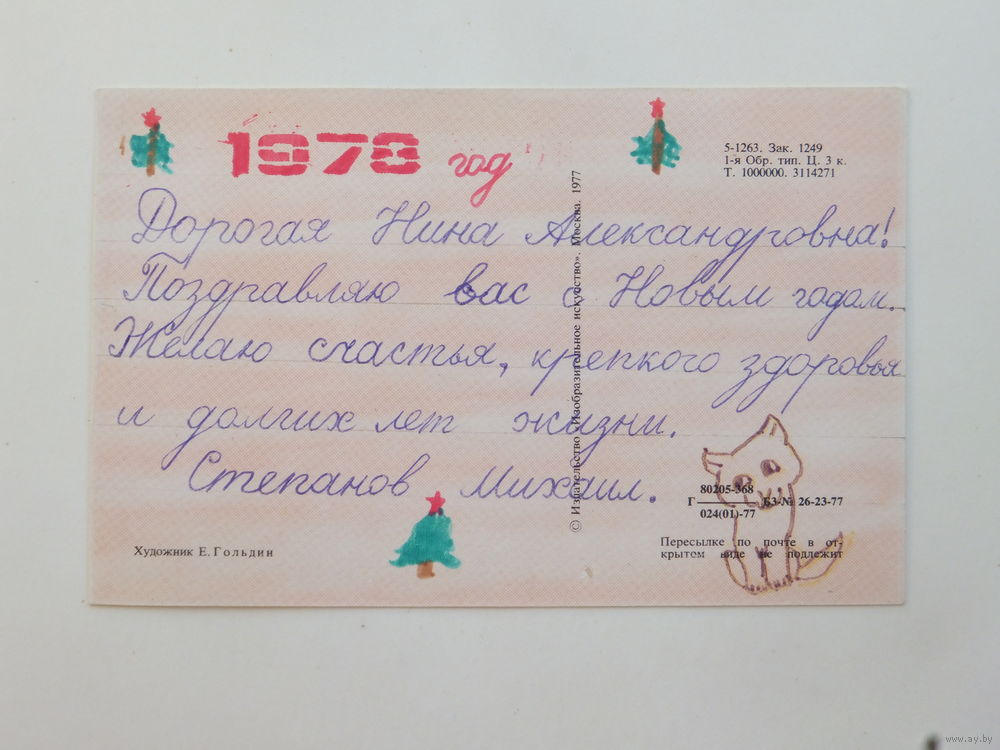 1978 год
5-1263. Зак. 1249
1-я Обр. тип. Ц. 3 к.
Т. 1000000. 3114271
Дорогая Нина Александровна!
Поздравляю вас с Новым годом.
Желаю счастья, крепкого здоровья
и долгих лет жизни.
Степанов Михаил.
© Издательство «Изобразительное искусство». Москва. 1977
80205-368
Г БЗ-№ 26-23-77
024(01)-77
Пересылке по почте в от-
крытом виде не подлежит
Художник Е. Гольдин
www.ay.by